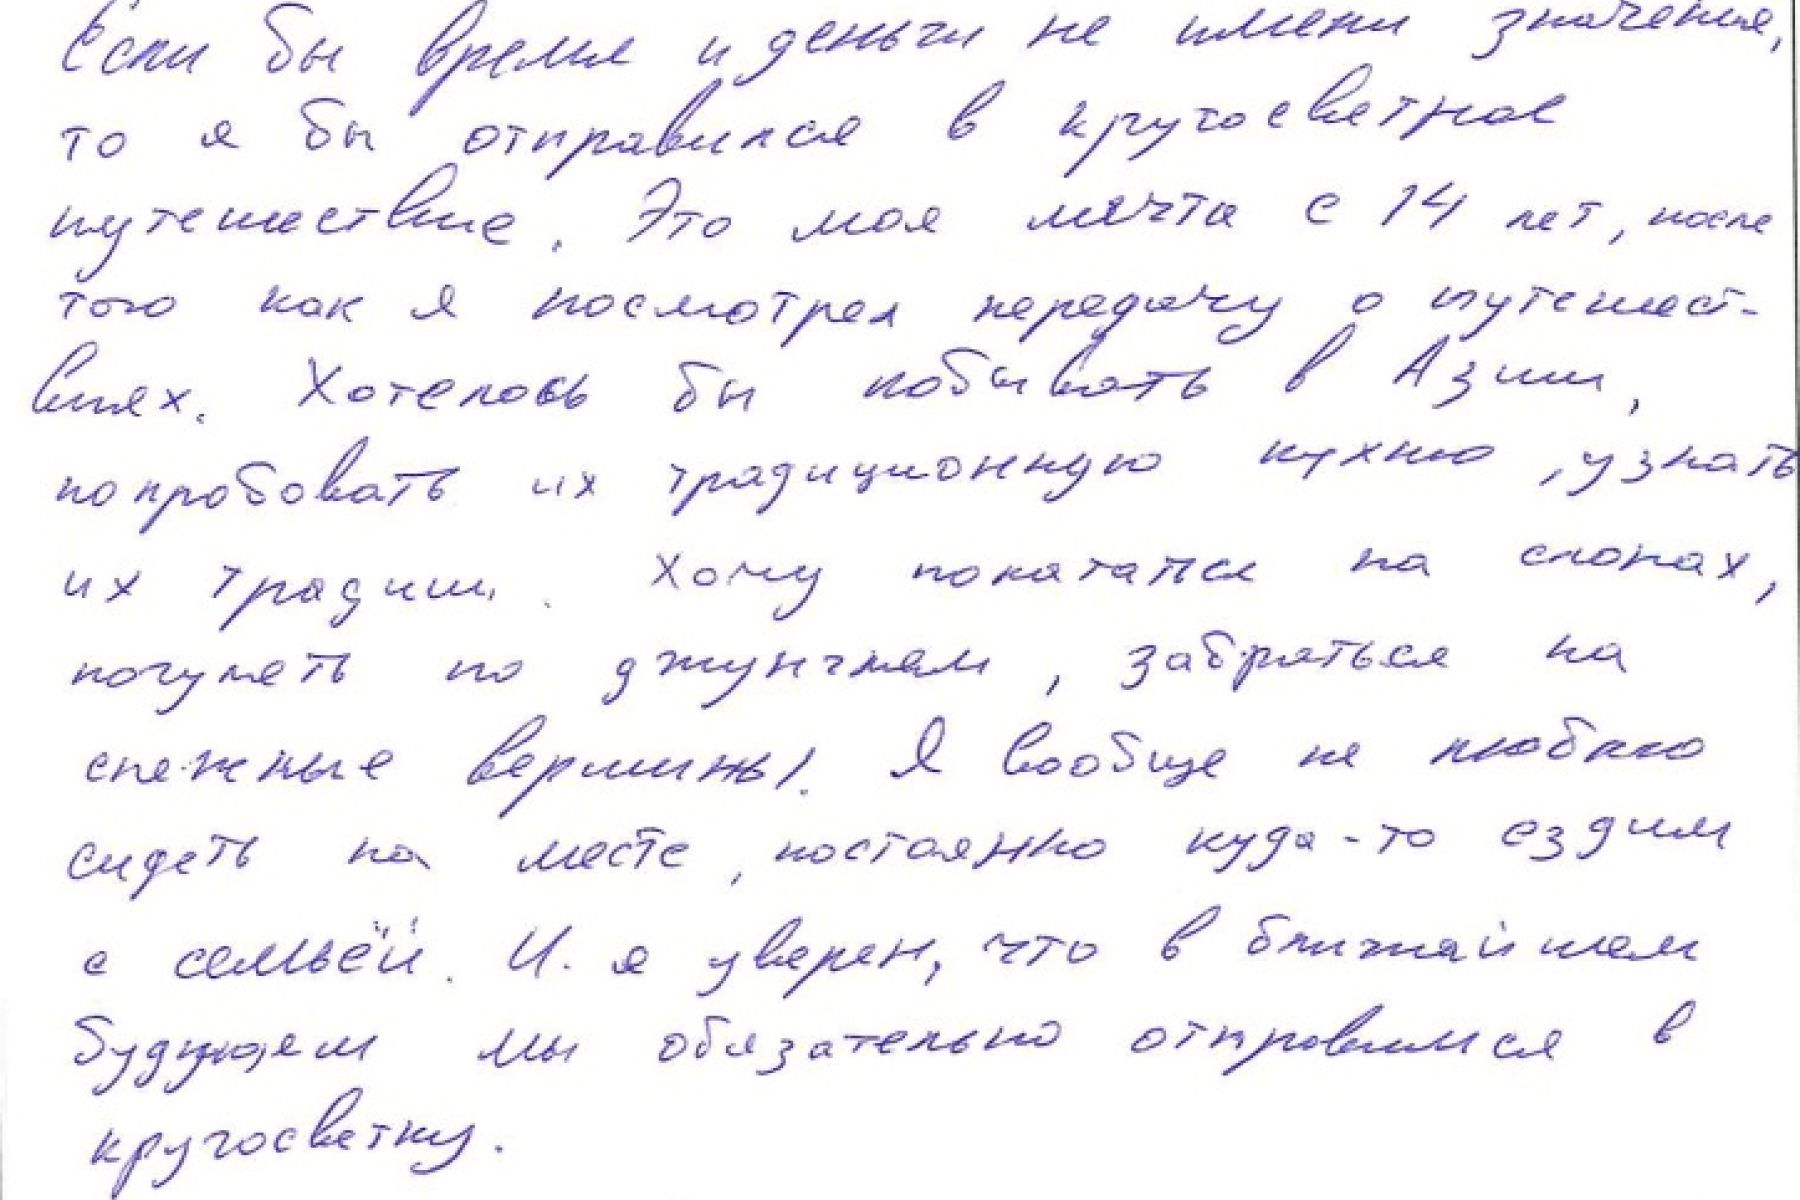 Если бы время и деньги не имели значения,
то я бы отправился в кругосветное
путешествие. Это моя мечта с 14 лет, после
того как я посмотрел передачу о путешест-
виях. Хотелось бы побывать в Азии,
попробовать их традиционную кухню, узнать
их традиции. Хочу покататся на слонах,
погулять по джунглям, забраться на
снежные вершины. Я вообще не люблю
сидеть на месте, постоянно куда-то ездим
с семьёй. И я уверен, что в ближайшем
будущем мы обязательно отправимся в
кругосветку.